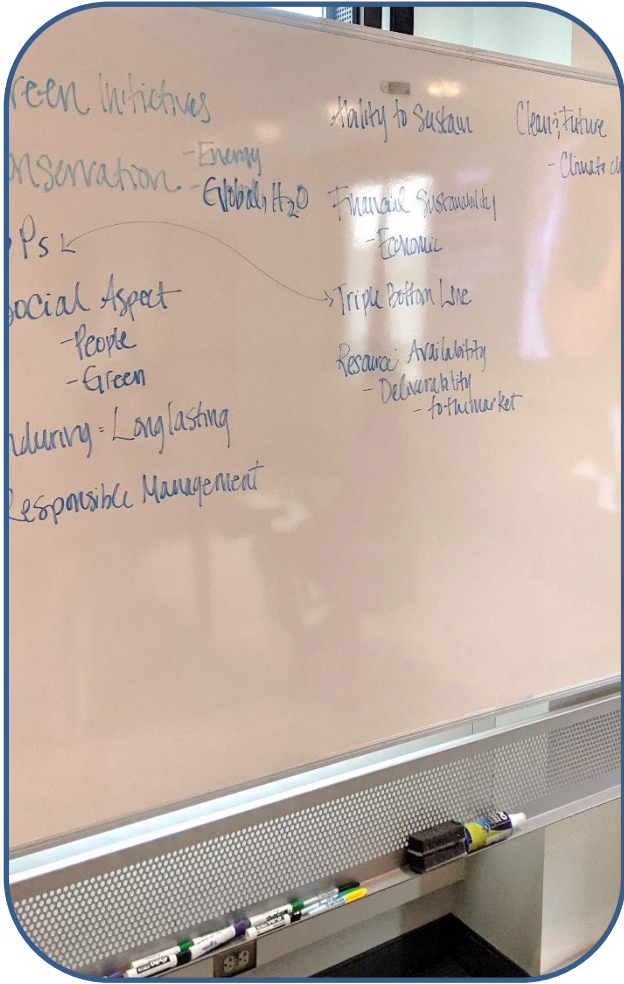 reen Initiatives
onservation
- Energy
- Global, H2O
Ps
ocial Aspect
- People
- Green
nduring = Long lasting
esponsible Management
Ability to Sustain
Financial Sustainability
- Economic
Triple Bottom Line
Resource: Availability
- Deliverability
- to the market
Clean; Future
- Climate